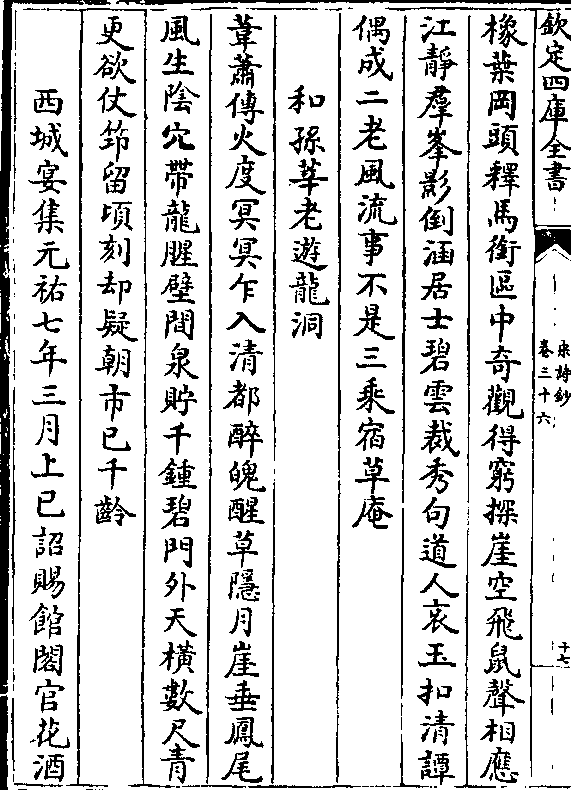 欽定四庫全書
宋詩鈔
卷三十六
十七
橡葉岡頭釋馬銜區中奇觀得窮探崖空飛鼠聲相應
江靜羣峯影倒涵居士碧雲裁秀句道人哀玉扣清譚
偶成二老風流事不是三乘宿草庵
和孫莘老遊龍洞
葦蕭傳火度冥冥乍入清都醉魄醒草隱月崖垂鳳尾
風生陰穴帶龍腥壁間泉貯千鍾碧門外天橫數尺青
更欲仗筇留頃刻却疑朝市已千齡
西城宴集元祐七年三月上巳詔賜館閣官花酒